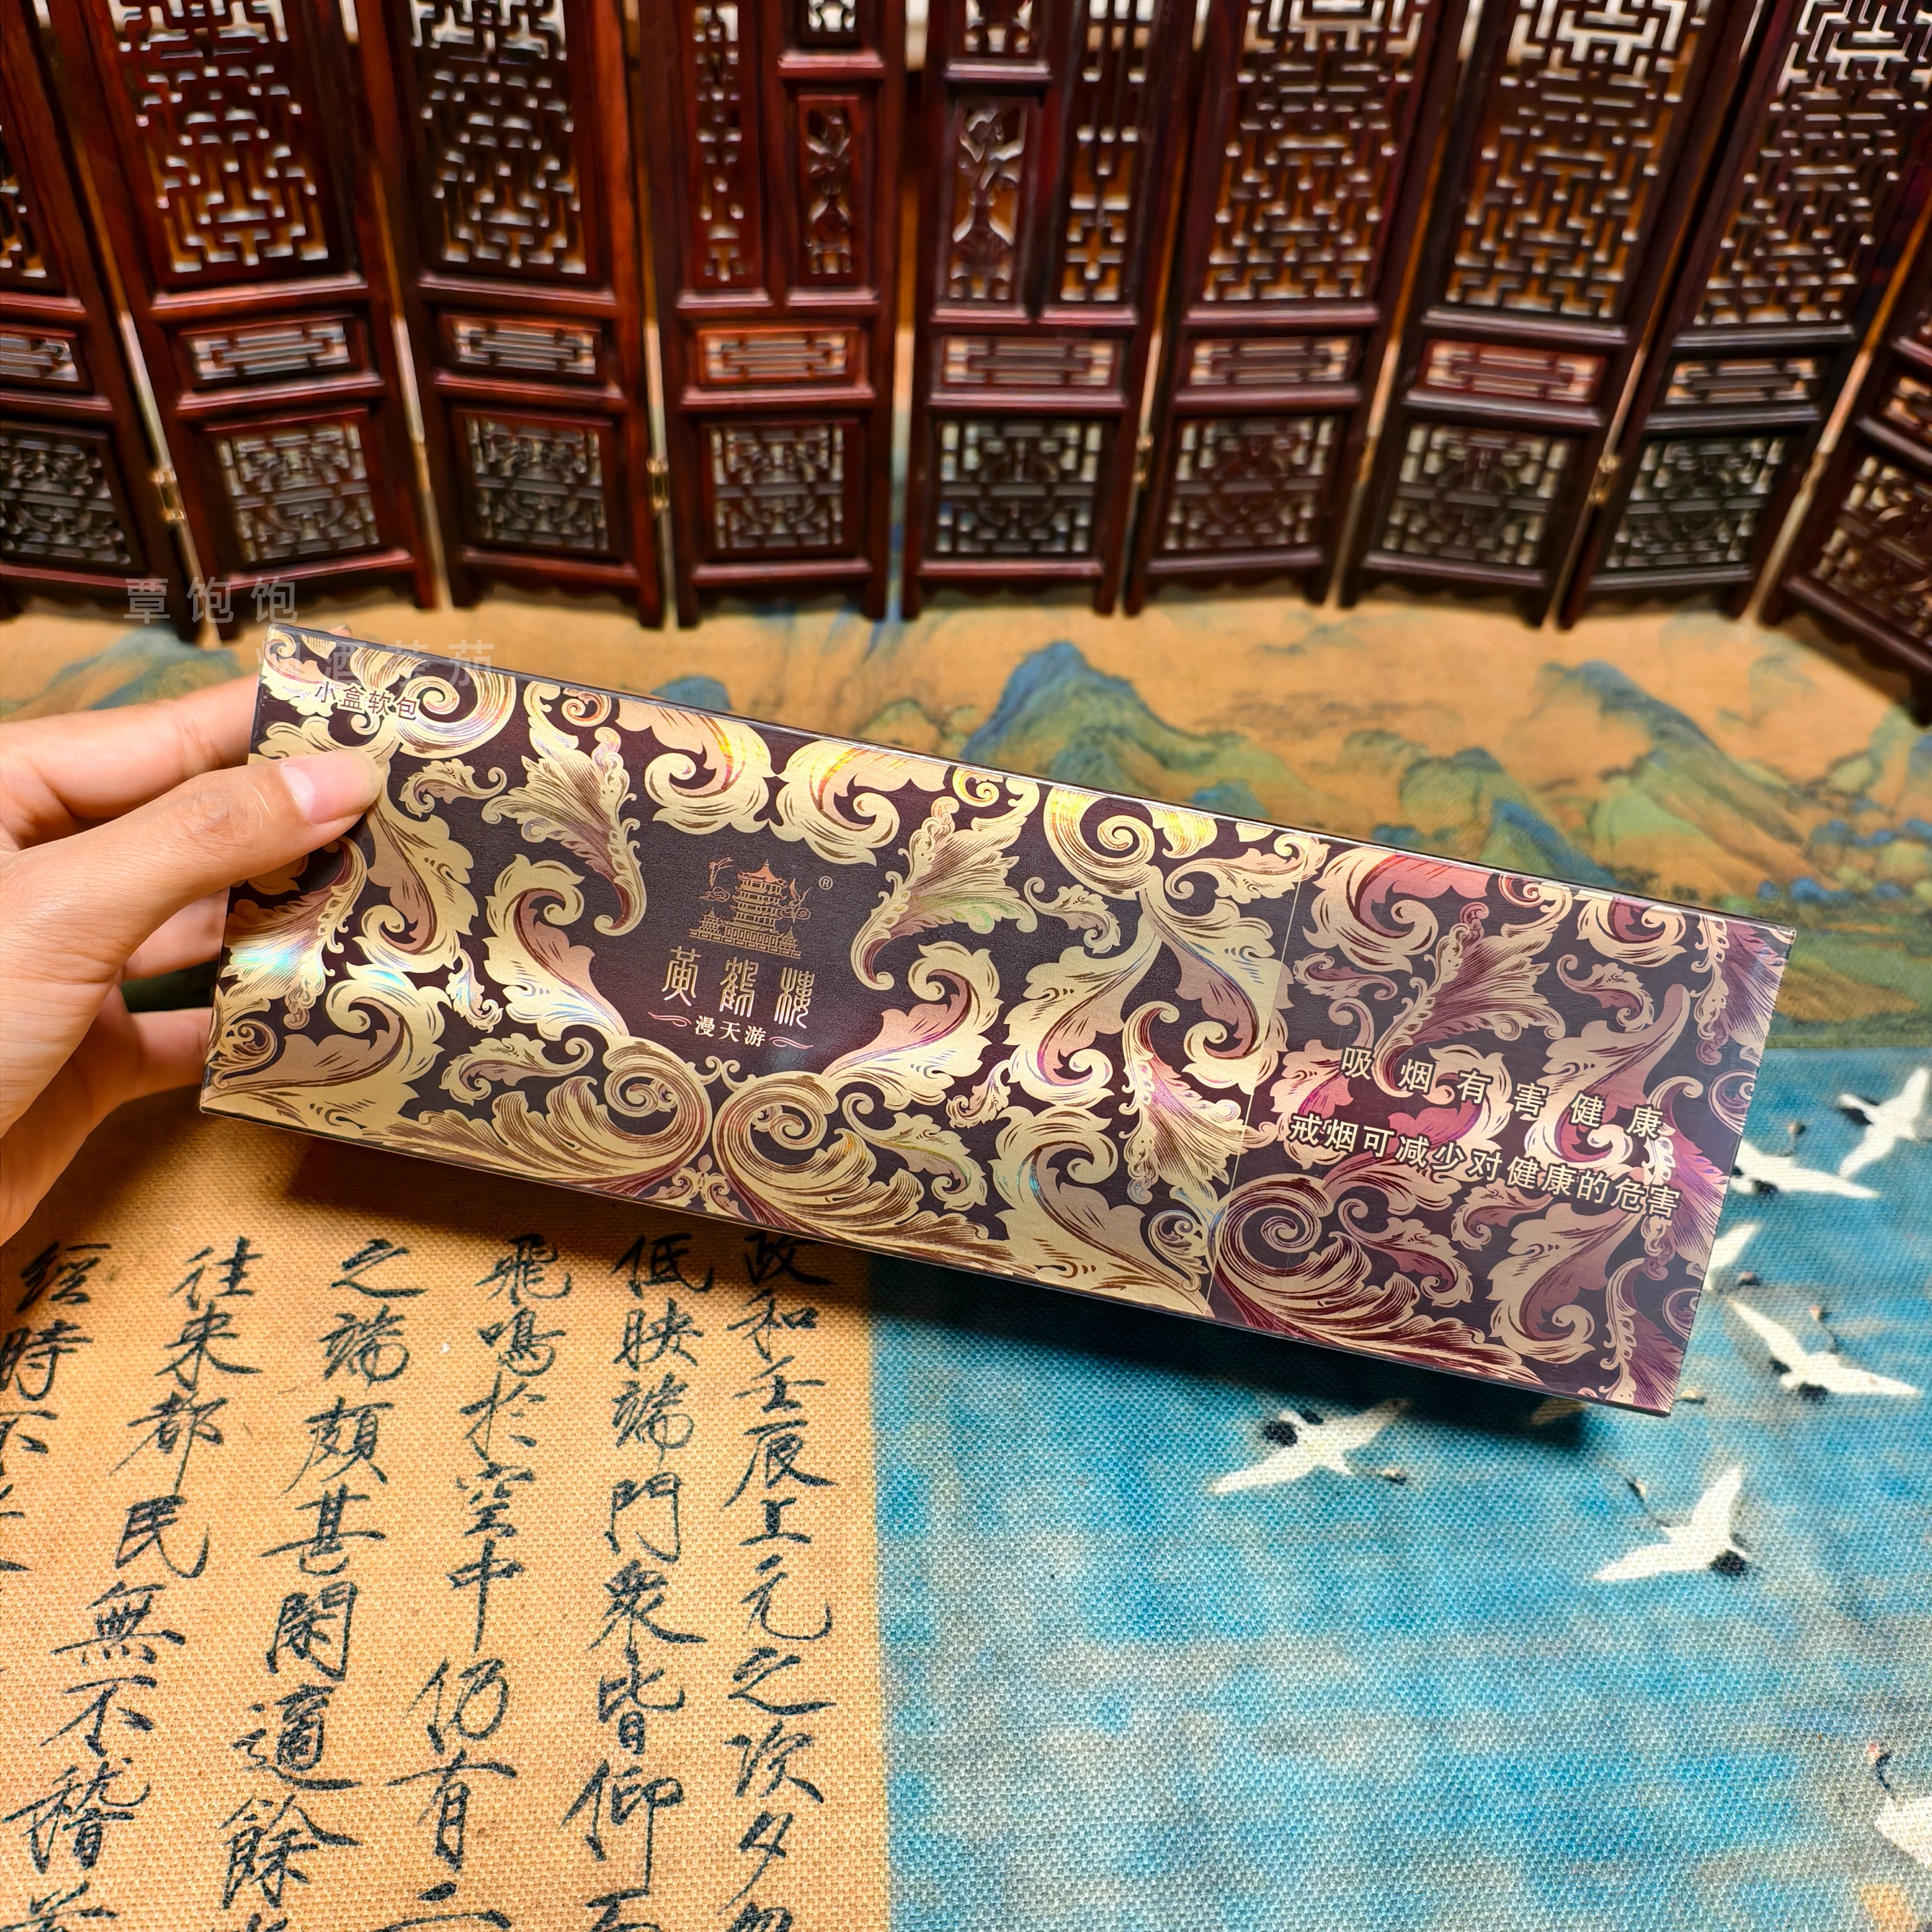 覃饱饱
烟酒茶茄
小盒软包
®
黄鹤楼
漫天游
吸烟有害健康
戒烟可减少对健康的危害
政和壬辰上元之次夕忽
低映端門衆皆仰而
飛鳴於空中仍有二
之端頗甚閑適餘
往来都民無不稽
經時不